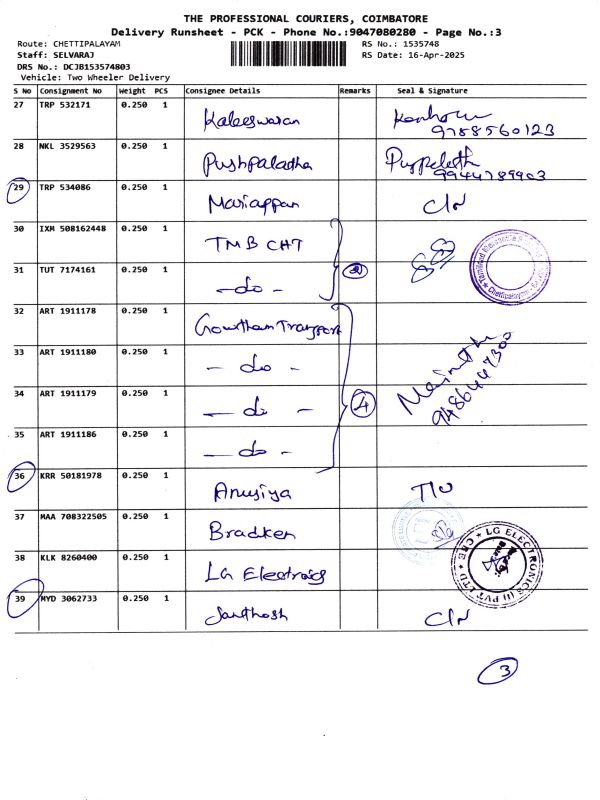 THE PROFESSIONAL COURIERS, COIMBATORE
Delivery Runsheet - PCK - Phone No.:9047080280 - Page No.:3
Route: CHETTIPALAYAM RS No.: 1535748
Staff: SELVARAJ RS Date: 16-Apr-2025
DRS No.: DCJB153574803
Vehicle: Two Wheeler Delivery
S No Consignment No Weight PCS Consignee Details Remarks Seal & Signature
27 TRP 532171 0.250 1 Kaleeswaran
9788560123
28 NKL 3529563 0.250 1 Pushpaladha
9944789903
29 TRP 534086 0.250 1 Mariappan C/N
30 IXM 508162448 0.250 1 TMB CHT
31 TUT 7174161 0.250 1 -do- 2
32 ART 1911178 0.250 1 Gowtham Transport
33 ART 1911180 0.250 1 - do -
34 ART 1911179 0.250 1 - do - 4
9486447300
35 ART 1911186 0.250 1 - do -
36 KRR 50181978 0.250 1 Anusiya
37 MAA 708322505 0.250 1 Bradken
38 KLK 8260400 0.250 1 LG Electronics
LG ELECTRONICS (I) PVT LTD
39 MYD 3062733 0.250 1 Santhosh C/N
3